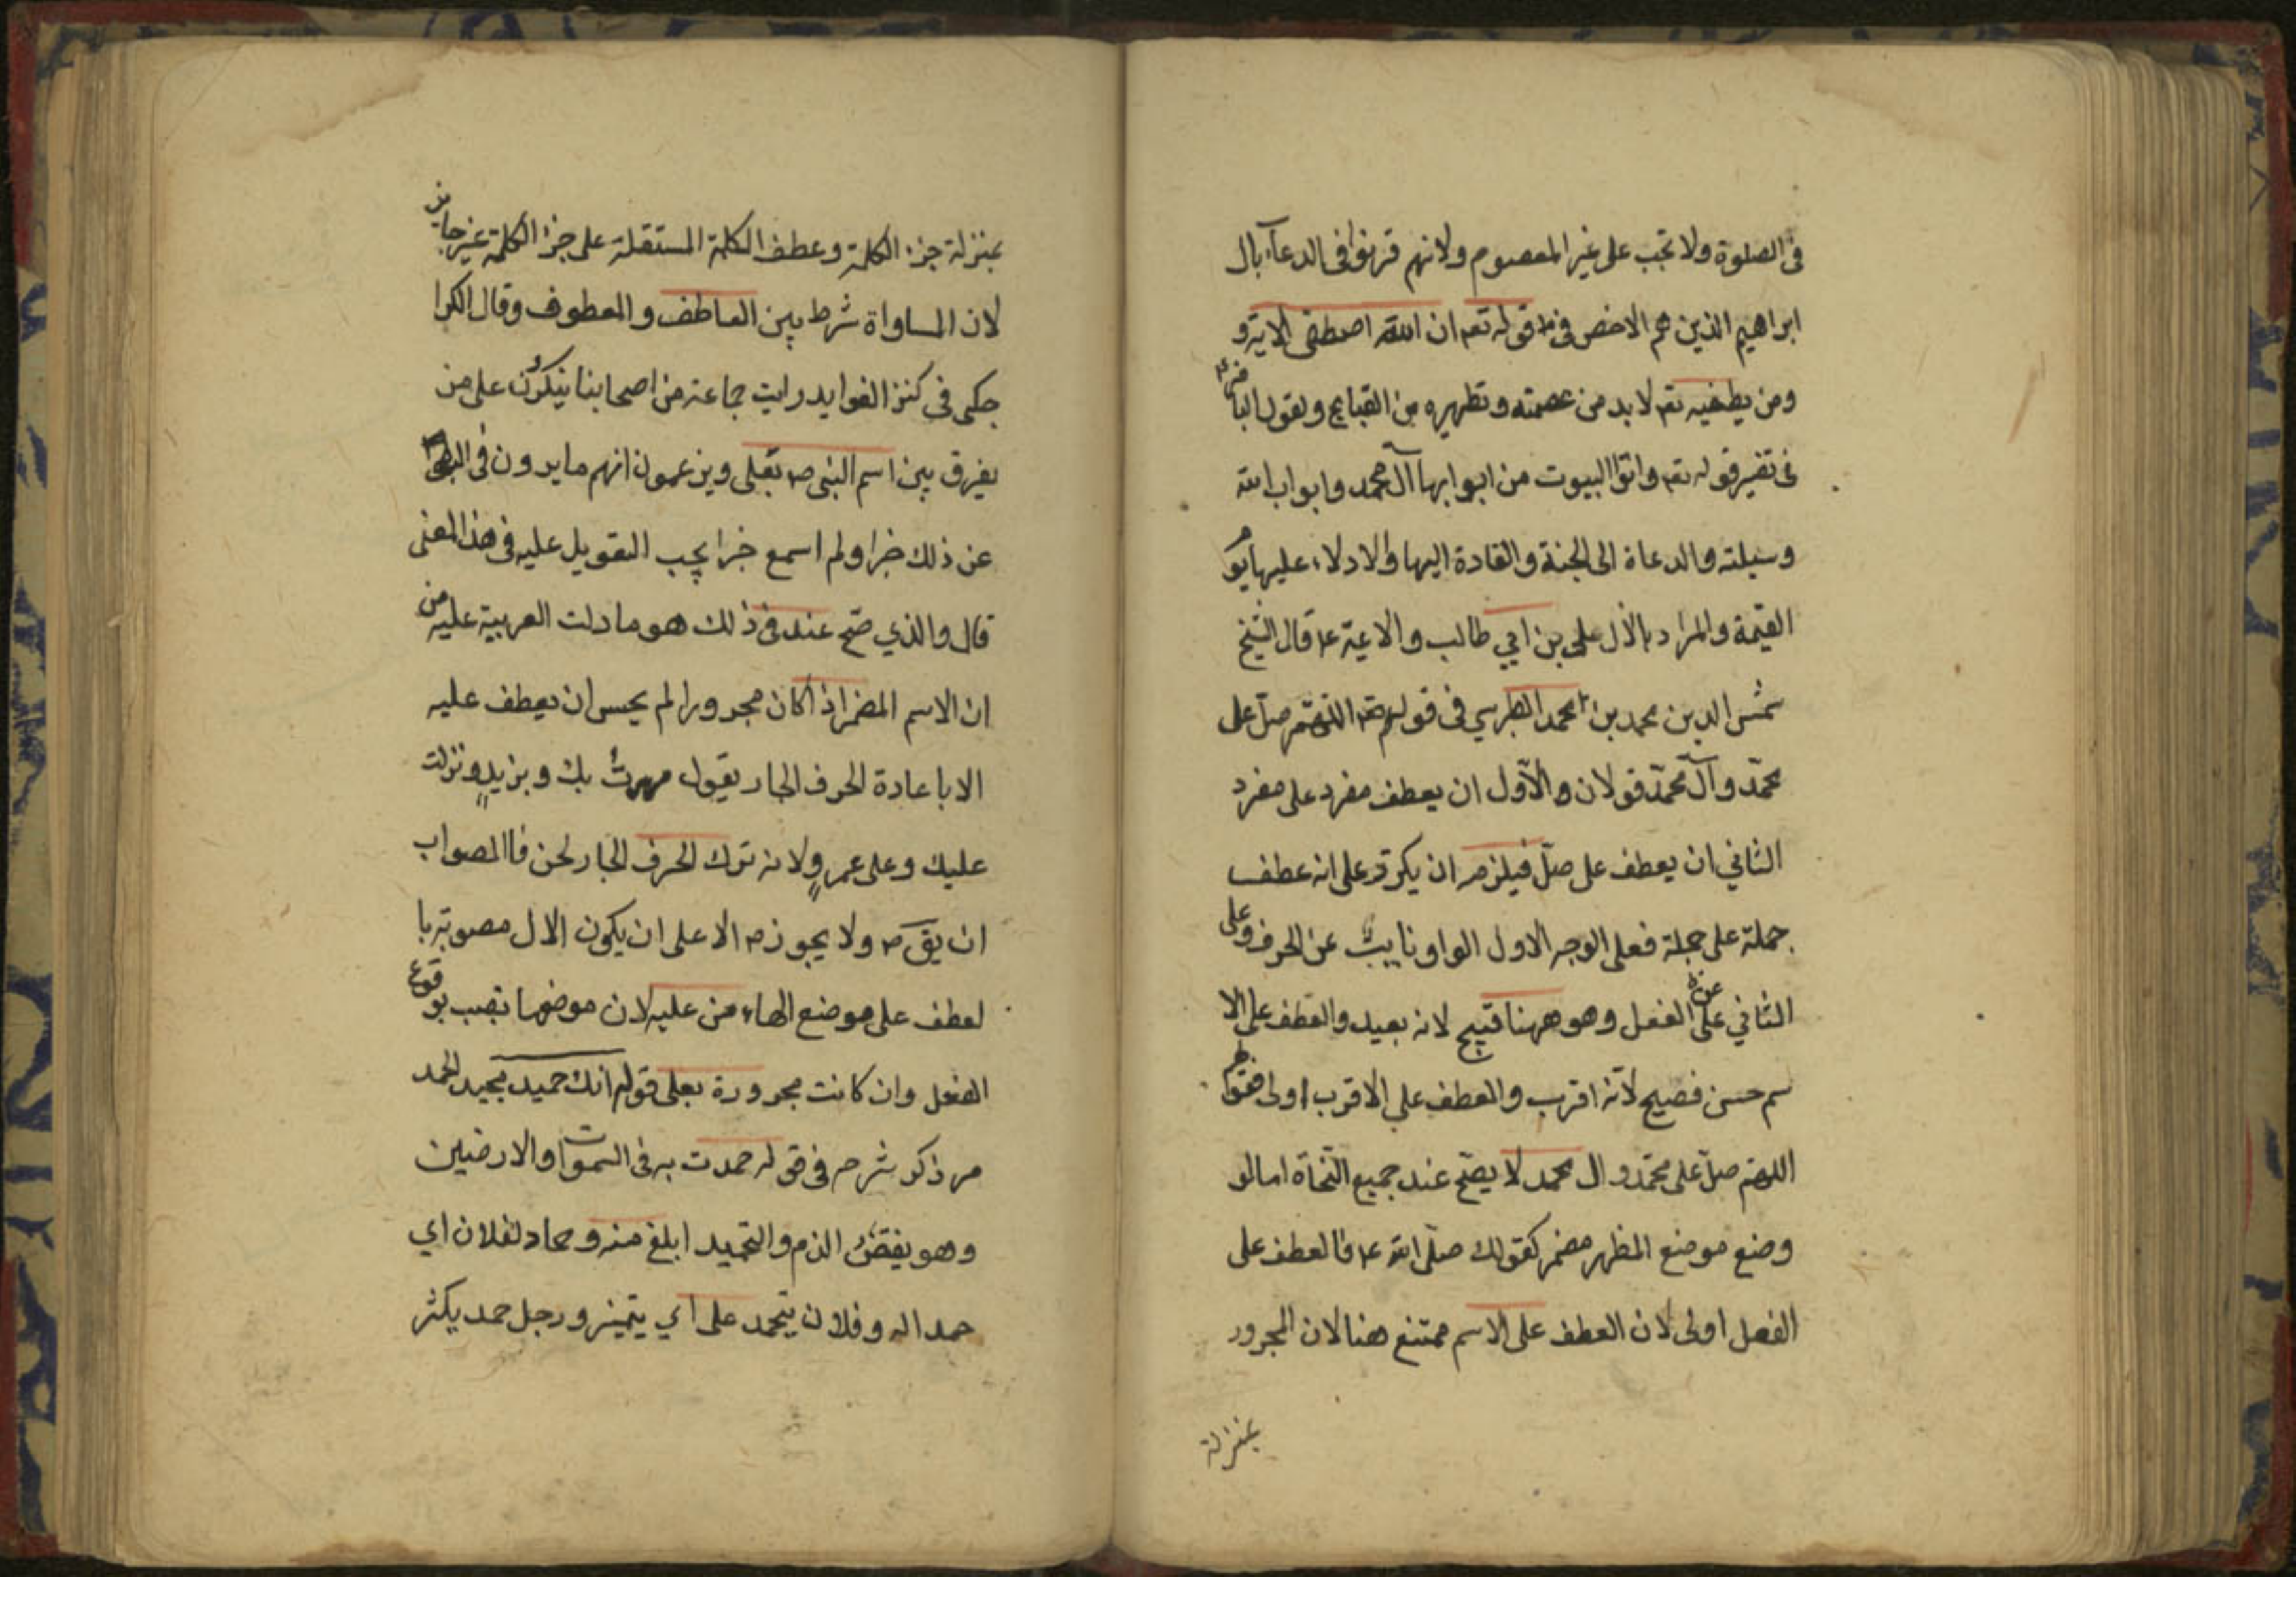 فى الصلوة ولا تجب على غير المعصوم ولانهم قرنوا فى الدعآء بال
ابراهيم الذين هم الاخص فى قوله تعم ان الله اصطفى الاية و
ومن يطفيه تعم لا بد من عصمته وتطهيره من القبايح ولقول الباقر ع
فى تفسير قوله تعم واتوا البيوت من ابوابها آل محمد وابواب الله
وسيلته والدعاة الى الجنة والقادة اليها والادلاء عليها يوم
القيمة والمراد بالال على بن ابي طالب والائمة ع قال الشيخ
شمس الدين محمد بن محمد الطبرسي فى قولهم اللهم صلّ على
محمّد وآل محمّد قولان والاول ان يعطف مفرد على مفرد
الثاني ان يعطف على صلّ فيلزم ان يكرر على انه عطف
جملة على جملة فعلى الوجه الاول الواو نايبٌ عن الحرف وعلى
الثاني عن الفعل وهو ههنا قبيح لانه بعيد والعطف على الا
سم حسن فصيح لانّه اقرب والعطف على الاقرب اولى فقول
اللهم صلّ على محمّد وال محمد لا يصّح عند جميع النّحاة اما لو
وضع موضع المظهر مضمر كقولك صلّى الله ع فالعطف على
الفعل اولى لان العطف على الاسم ممتنع هنا لان المجرور
بمنزلة
بمنزلة جزء الكلمة وعطف الكلمة المستقلة على جزء الكلمة غير جايز
لان المساواة شرط بين العاطف والمعطوف وقال الكرا
جكى فى كنز الفوايد رايت جماعة من اصحابنا ينكرون على من
يفرق بين اسم النبى ص بعلى ويزعمون انهم مايرون فى النهى
عن ذلك خبرا ولم اسمع خبرا يجب التعويل عليه فى هذا المعنى
قال والذي صّح عند فى ذلك هو ما دلت العربية عليه من
ان الاسم المضمر اذا كان مجرورا لم يحسن ان يعطف عليه
الا باعادة الحرف الجار يقول مررتُ بك وبزيدٍ ونزلت
عليك وعلى عمرٍو ولانه ترك الحرف الجار لحن فاالصواب
ان يق ص ولا يجوز ص الا على ان يكون الال منصوبة با
لعطف على موضع الهاء من عليه لان موضعها نصب بوقوع
الفعل وان كانت مجرورة بعلى قوله انك حميد مجيد الحمد
مر ذكر شرحه فى قوله حمدت به فى السموات والارضين
وهو يفقض الذم والتحميد ابلغ منه وحماد لفلان اي
حمدا له وفلان يتحمد على اي يتميز ورجل حمد يكثر